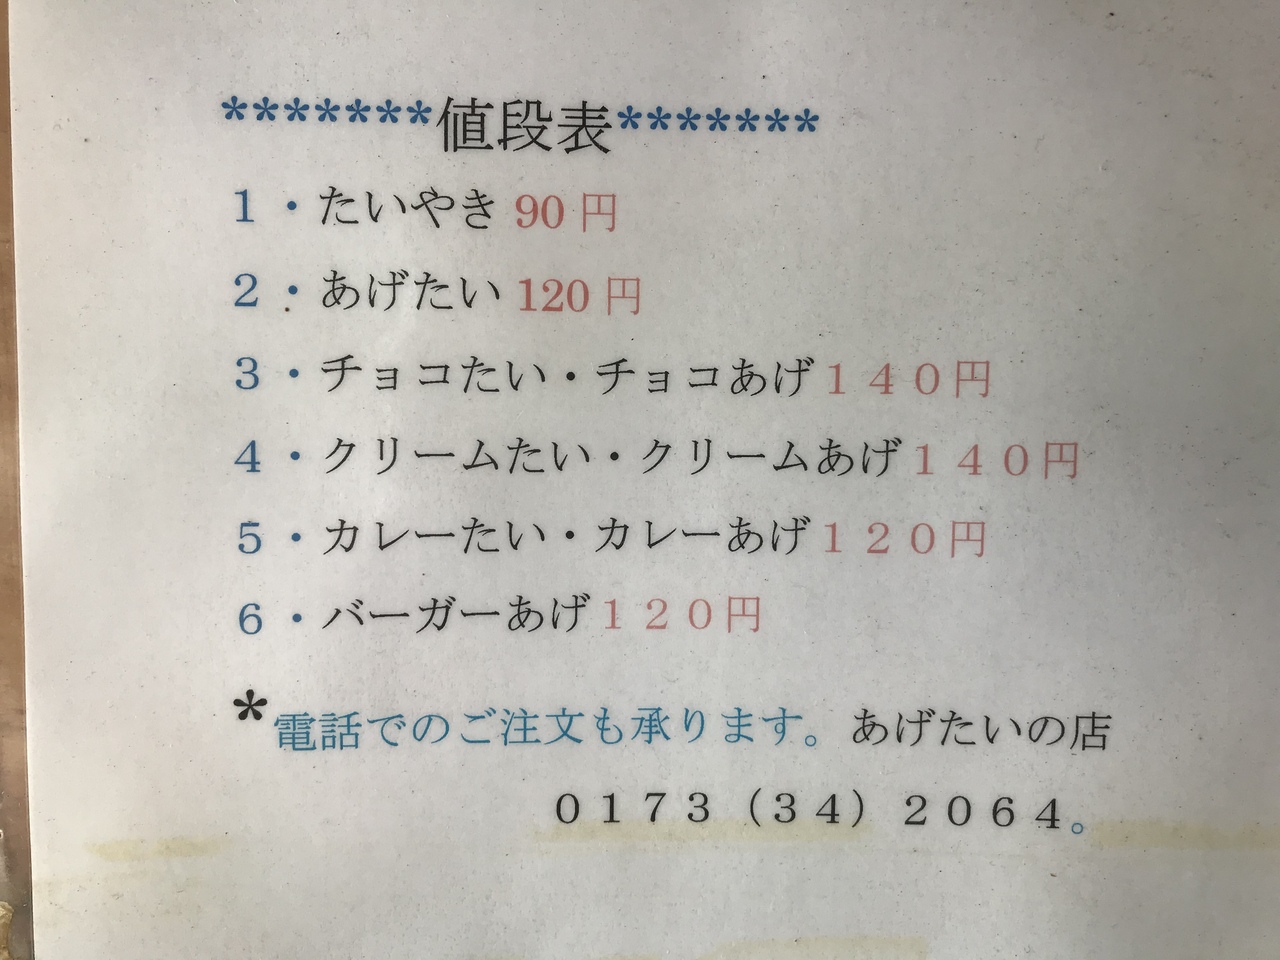 *******値段表*******
１・たいやき 90 円
２・あげたい 120 円
３・チョコたい・チョコあげ１４０円
４・クリームたい・クリームあげ１４０円
５・カレーたい・カレーあげ１２０円
６・バーガーあげ１２０円
*電話でのご注文も承ります。あげたいの店
０１７３（３４）２０６４。